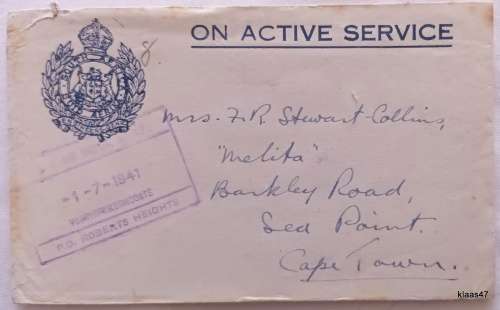 ON ACTIVE SERVICE
8
Mrs. F. R. Stewart-Collins,
"Melita"
Barkley Road,
Sea Point.
Cape Town.
-1-7-1941
P.O. ROBERTS HEIGHTS
klaas47